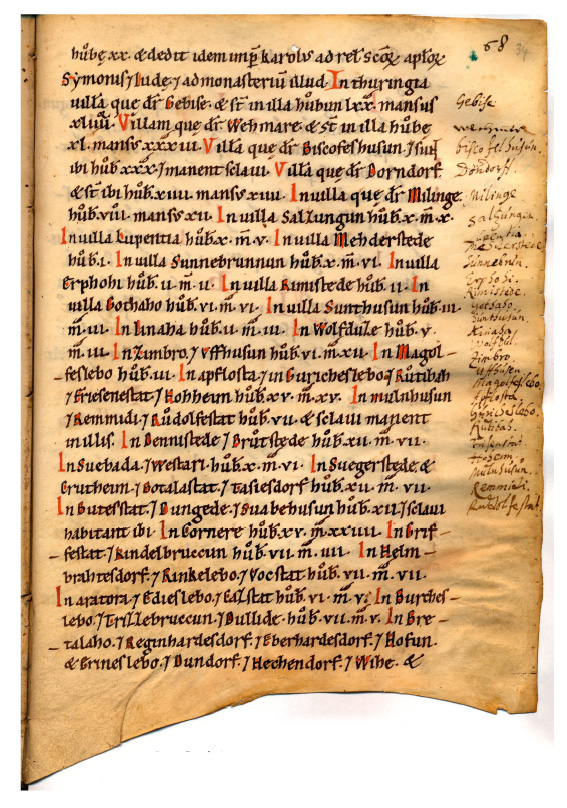 68 34
hůbę xx. & dedit idem imp̄ karolus ad reł scōꝝ apłoꝝ
Symonis ⁊ Iudę ⁊ ad monasteriū illud In thuringia
uilla que dr̄ Gebise. & st̄ in illa hůbun lxx. mansus
xluii. Villam que dr̄ Wehmare. & st̄ in illa hůbę
xl. mansus xxxiii. Villa que dr̄ Biscofeshusun. ⁊
ibi hůb xxx. ⁊ manent sclaui. Villa que dr̄ Dorndorf
& st̄ ibi hůb. xiii. mansus xiii. In uilla que dr̄ Milinge.
hůb. uiii. mansus xii. In uilla Salzungun hůb. x. m̄. x.
In uilla Lupentia hůb. x. m̄. v. In uilla Mehderstede
hůb. i. In uilla Sunnebrunnun hůb. x. m̄. vi. In uilla
Erphohi hůb. ii. m̄. ii. In uilla Rimistede hůb. ii. In
uilla Gothaho hůb. vi. m̄. vi. In uilla Sunthusun hůb. iii.
m̄. iii. In Linaha hůb. ii. m̄. iii. In Wolfdule hůb. v.
m̄. iii. In Zimbro. ⁊ Vffhusun hůb. vi. m̄. xii. In Magol-
feslebo hůb. iii. In apflosta. ⁊ in Guricheslebo. ⁊ Růtibah
⁊ Friesenestat. ⁊ Hohheim hůb. xv. m̄. xv. In mulnhusun
⁊ Remmidi. ⁊ Růdolfestat hůb. vii. & sclaui manent
in illis. In Dennistede. ⁊ Brůtstede hůb. xii. m̄. vii.
In Suebada. ⁊ Westari. hůb. x. m̄. vi. In Suegerstede. &
Crutheim. ⁊ Botalastat. ⁊ Tasiesdorf hůb. xii. m̄. vii.
In Butesstat. ⁊ Dungede. ⁊ Suabehusun hůb. xii. ⁊ sclaui
habitant ibi. In Cornere hůb. xv. m̄. xxiiii. In Grif-
festat. ⁊ Kindelbruccun hůb. vii. m̄. iiii. In Helm-
brahtesdorf. ⁊ Rinkelebo. ⁊ Vocstat hůb. vii. m̄. vii.
In aratora. ⁊ Edieslebo. ⁊ Ealstat hůb. vi. m̄. v. In Burches-
lebo. ⁊ Trizlebruccun. ⁊ Bullide. hůb. vii. m̄. v. In Bre-
talaho. ⁊ Reginhardesdorf. ⁊ Eberhardesdorf. ⁊ Hofun.
& Erineslebo. ⁊ Dundorf. ⁊ Hechendorf. ⁊ Wihe. &
Gebise
Wechmare
biscofelhusun.
Dorndorff.
Milinge
Salzungun.
Lupentia
Mehderstede
Sunnebrun.
Erphohi.
Rimistede.
Gothaho.
Sunthusun.
Zimbro.
Vffhusen
Magolfeslebo.
Apflosta
Guricheslebo.
Rutibas.
Hoheim.
Mulnhusun.
Remmidi.
Rudolfestat.